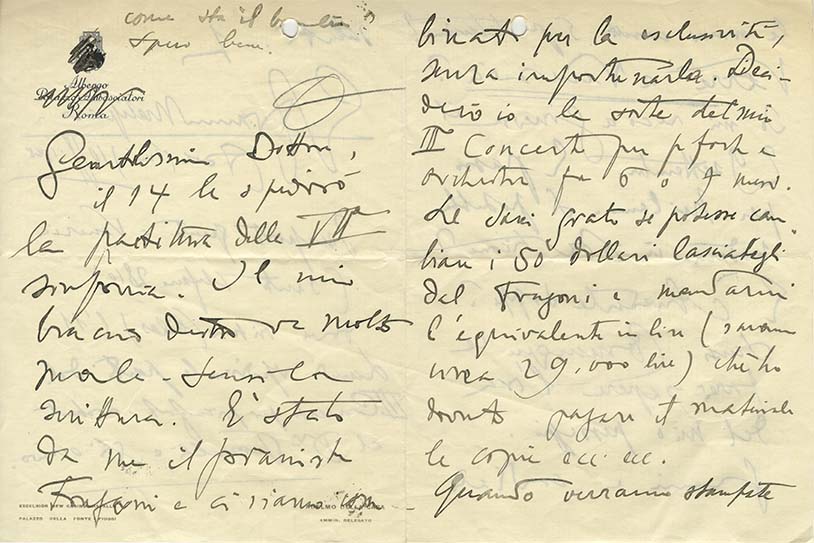 come sta il
spero bene.
Albergo
Palazzo Ambasciatori
Roma
Gentilissimo Dottore,
il 14 le spedirò
la partitura della VIIa
sinfonia. Il mio
braccio destro va molto
male - scusi la
scrittura. È stato
da me il pianista
Frugoni e ci siamo com-
EXCELSIOR NEW
PALAZZO DELLA FONTE (FIUGGI)
AMMIN. DELEGATO
binati per la esclusività,
senza importunarla. Deci-
derò io la sorte del mio
III Concerto per pforte e
orchestra fra 6 o 7 mesi.
Le sarei grato se potesse cam-
biare i 50 dollari lasciatigli
dal Frugoni e mandarmi
l'equivalente in lire (saranno
circa 29,000 lire) che ho
dovuto pagare il materiale
le copie ecc ecc.
Quando verranno stampate